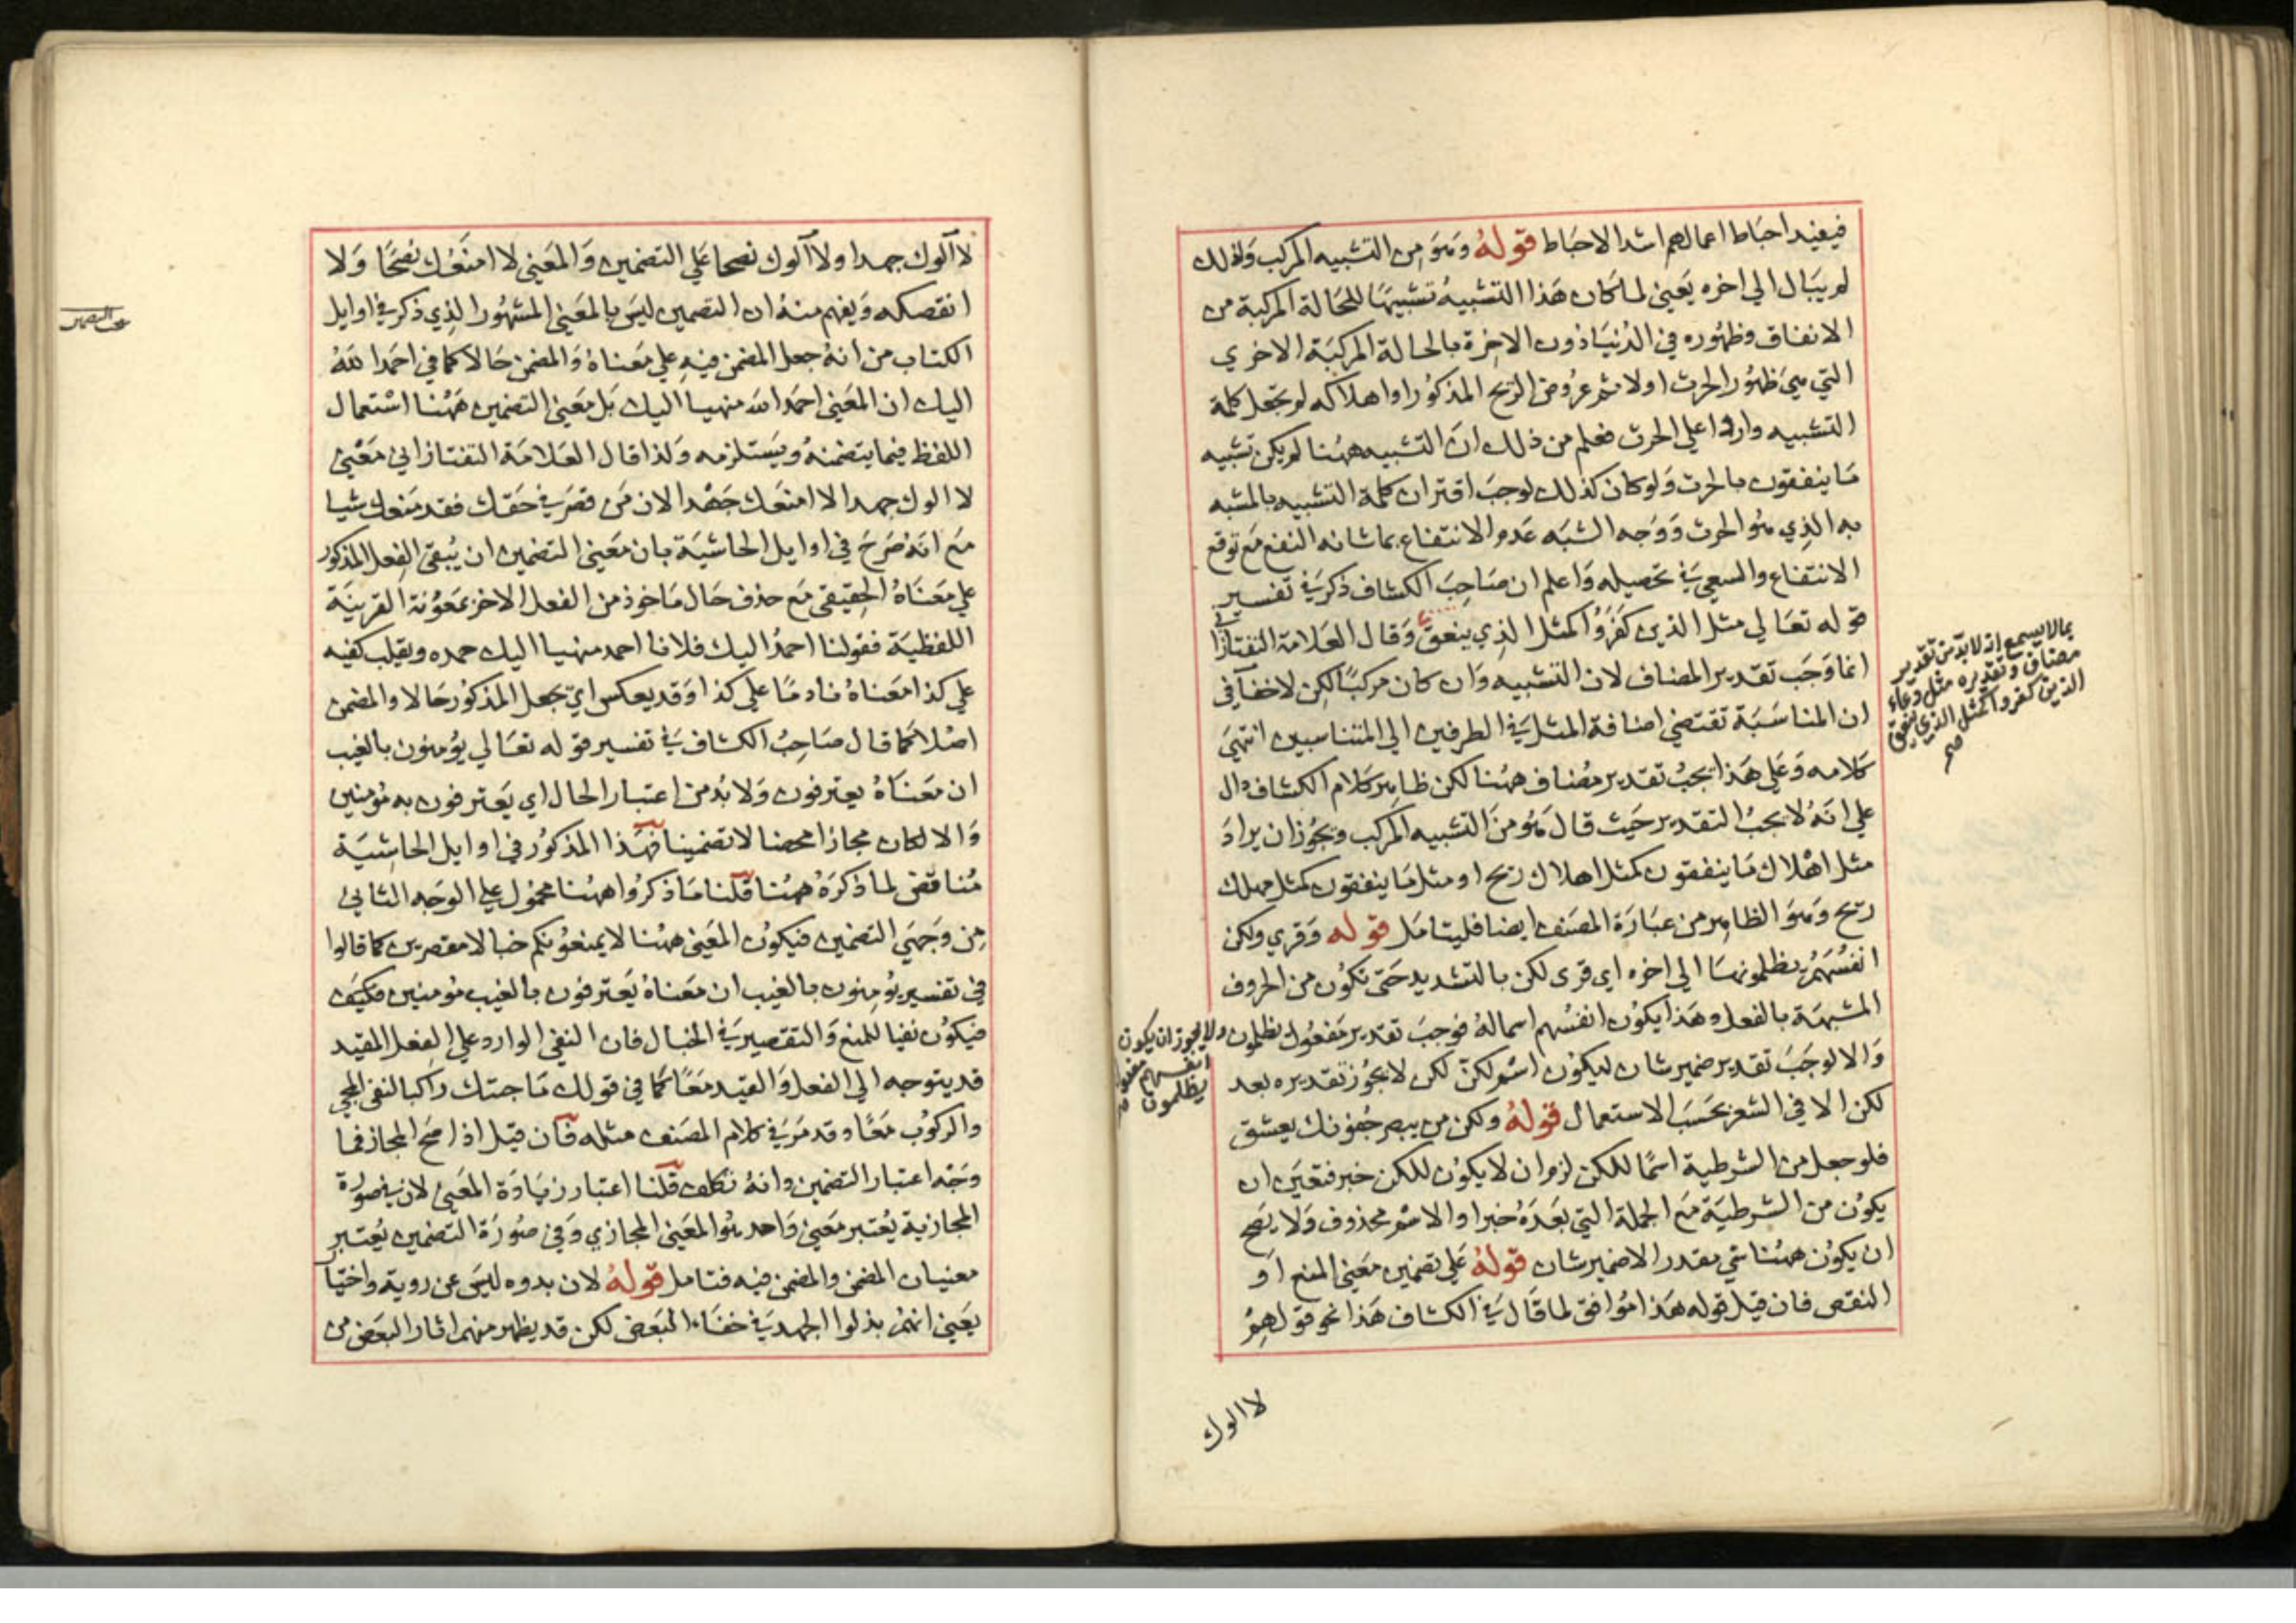 فيفيد احباط اعمالهم اشد الاحباط قوله وهو من التشبيه المركب ولذلك
لم يبال الى اخره يعني لما كان هذا التشبيه تشبيها للحالة المركبة من
الانفاق وظهوره في الدنيا دون الاخرة بالحالة المركبة الاخري
التي هي ظهور الحرث اولا ثم عروض الريح المذكور او اهلاكه لم يجعل كلمة
التشبيه واردا علي الحرث فعلم من ذلك ان التشبيه ههنا لم يكن تشبيه
ما ينفقون بالحرث ولو كان كذلك لوجب اقتران كلمة التشبيه بالمشبه
به الذي هو الحرث ووجه الشبه عدم الانتفاع بما شانه النفع مع توقع
الانتفاع والسعي في تحصيله واعلم ان صاحب الكشاف ذكر في تفسير
قوله تعالي مثل الذين كفروا كمثل الذي ينعق وقال العلامة التفتازاني
انما وجب تقدير المضاف لان التشبيه وان كان مركبا لكن لا خفآ في
ان المناسبة تقتضي اضافة المثل في الطرفين الي المتناسبين انتهي
كلامه وعلي هذا يجب تقدير مضاف ههنا لكن ظاهر كلام الكشاف دال
علي انه لا يجب التقدير حيث قال هو من التشبيه المركب ويجوز ان يراد
مثل اهلاك ما ينفقون كمثل اهلاك ريح او مثل ما ينفقون كمثل مهلك
ريح وهو الظاهر من عبارة المصنف ايضا فليتامل قوله وقري ولكن
انفسهم يظلمونها الي اخره اي قري لكن بالتشديد حتى تكون من الحروف
المشبهة بالفعل وهذا يكون انفسهم اسما له فوجب تقدير مفعول يظلمون
والا لوجب تقدير ضمير شان ليكون اسم لكن لكن لا يجوز تقديره بعد
لكن الا في الشعر بحسب الاستعمال قوله ولكن من يبصر جفونك يعشق
فلو جعل من الشرطية اسما للكن لزم ان لا يكون للكن خبر فتعين ان
يكون من الشرطية مع الجملة التي بعده خبرا والاسم محذوف ولا يصح
ان يكون ههنا شي مقدر الا ضمير شان قوله علي تضمين معني المنع او
النقص فان قيل قوله هذا موافق لما قال في الكشاف هذا نحو قولهم
لا الوك
بما لا يسمع انه لا بد من تقدير
مضاف وتقديره مثل دعاء
الذين كفروا كمثل الذي ينعق
صح
ولا يجوز ان يكون
انفسهم مفعول
يظلمون
صح
لا آلوك جهدا ولا آلوك نصحا علي التضمين والمعني لا امنعك نصحا ولا
انقصكه ويفهم منه ان التضمين ليس بالمعني المشهور الذي ذكر في اوايل
الكتاب من انه جعل المضمن فيه علي معناه والمضمن حالا كما في احمد الله
اليك ان المعني احمد الله منهيا اليك بل معني التضمين ههنا استعمال
اللفظ فيما يتضمنه ويستلزمه ولذا قال العلامة التفتازاني معني
لا الوك جهدا لا امنعك جهدا لان من قصر في حقك فقد منعك شيا
مع انه صرح في اوايل الحاشية بان معني التضمين ان يبقى الفعل المذكور
علي معناه الحقيقي مع حذف حال ماخوذ من الفعل الاخر بمعونة القرينة
اللفظية فقولنا احمد اليك فلانا احمد منهيا اليك حمده ويقلب كفيه
علي كذا معناه نادما علي كذا وقد يعكس اي يجعل المذكور حالا والمضمن
اصلا كما قال صاحب الكشاف في تفسير قوله تعالي يؤمنون بالغيب
ان معناه يعترفون ولا بد من اعتبار الحال اي يعترفون به مؤمنين
والا لكان مجازا محضا لا تضمينا فهذا المذكور في اوايل الحاشية
مناقض لما ذكره ههنا قلنا ما ذكروا ههنا محمول علي الوجه الثاني
من وجهي التضمين فيكون المعني ههنا لا يمنعونكم خبالا مقصرين كما قالوا
في تفسير يؤمنون بالغيب ان معناه يعترفون بالغيب مؤمنين فكيف
فيكون نفيا للمنع والتقصير في الخبال فان النفي الوارد علي الفعل المقيد
قد يتوجه الي الفعل والقيد معا كما في قولك ما جئتك راكبا لنفي المجي
والركوب معا وقد مر في كلام المصنف مثله فان قيل اذا صح المجاز فما
وجه اعتبار التضمين وانه تكلف قلنا اعتبار زيادة المعني لان في صورة
المجازية يعتبر معني واحد هو المعني المجازي وفي صورة التضمين يعتبر
معنيان المضمن والمضمن فيه فتامل قوله لان بدوه ليس عن روية واختيار
يعني انهم بذلوا الجهد في خفاء البغض لكن قد يظهر منهم اثار البغض من